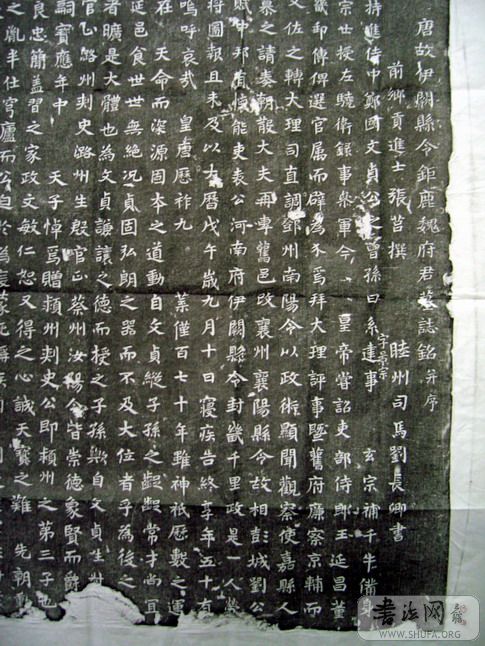 唐故伊闕縣令鉅鹿魏府君墓誌銘并序
前鄉貢進士張莒撰 睦州司馬劉長卿書
持進侍中鄭國文貞公之曾孫曰系字景宗逮事 玄宗補千牛備身
宗世授左驍衛錄事參軍 今 皇帝嘗詔吏部侍郎王延昌董
畿邵傅俾選官属而辟為不焉拜大理評事暨舊府廉察京輔而
文佐之轉大理司直調鄧州南陽令以政術顯聞觀察使嘉縣人
纂之請奏朝散大夫再專舊邑改襄州襄陽縣令故相彭城劉公
賦中邦首使能吏表公河南府伊闕縣令封畿千里政是一人
將圖報且未及以大曆戊午歲九月十日寢疾告終享年五十有
嗚呼哀哉 皇唐歷祚九 葉僅百七十年雖神祇歷數之運
在 天命而浚源固本之道動自文貞縱子孫之齪齪常才尚宜
延邑食世世無絕況貞固弘朗之器而不及大位者乎為後之
者曠是大體也為文貞謙讓之德而授之子孫歟自文貞生
官 潞州刺史潞州生殷官 蔡州汝陽令皆崇德家賢而
詞寶應年中 天子悼焉贈潁州刺史公即潁州之第三子也
良忠簡蓋習之家政文敏仁恕又得之心誠天寶之難 先朝
之胤羊仕穹廬而公自
書法网
WWW.SHUFA.ORG